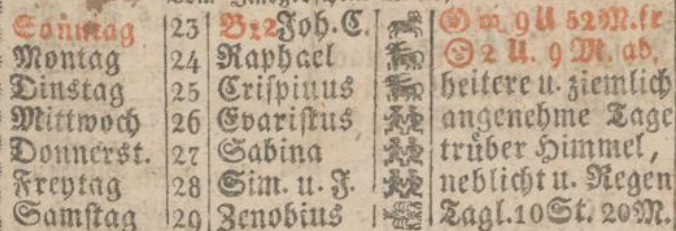 Sonntag 23 B22 Joh. C. in 9 U 52 M. fr
Montag 24 Raphael 2 U. 9 M. ab.
Dinstag 25 Crispinus heitere u. ziemlich
Mittwoch 26 Evaristus angenehme Tage
Donnerst. 27 Sabina trüber Himmel,
Freytag 28 Sim. u. J. neblicht u. Regen
Samstag 29 Zenobius Tagl. 10 St. 20 M.